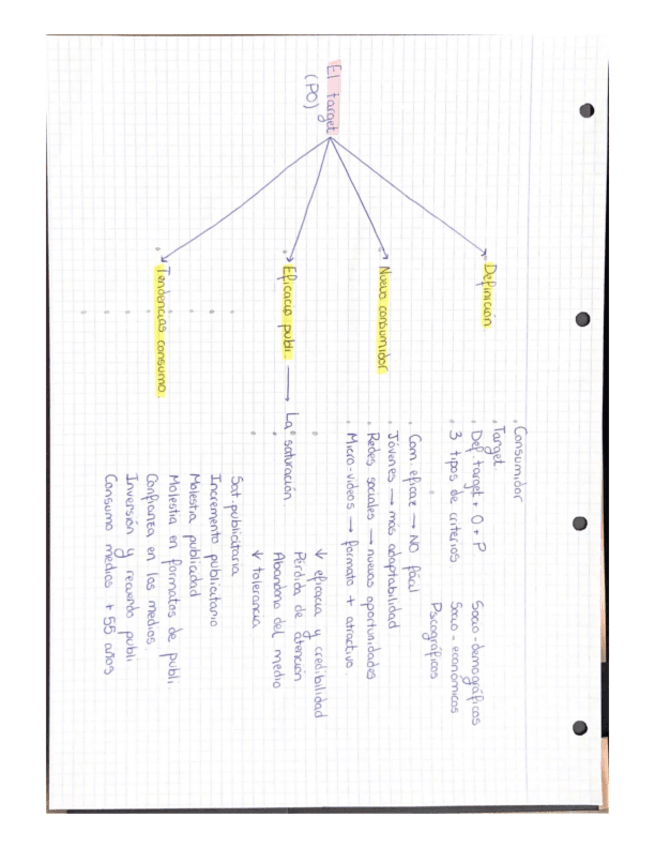 El target
(PO)
Definición
. Consumidor
. Target
. Def. target + O + P
. 3 tipos de criterios
Socio-demográficos
Socio-económicos
Psicográficos
Nuevo consumidor
. Com eficaz → NO fácil
. Jóvenes → más adaptabilidad
. Redes sociales → nuevas oportunidades
. Micro-videos → formato + atractivo.
Eficacia publi. → La saturación
↓ eficacia y credibilidad
Pérdida de atención
Abandono del medio
↓ tolerancia
Tendencias consumo.
Sat. publicitaria
Incremento publicitario
Molestia publicidad
Molestia en formatos de publi.
Confianza en los medios.
Inversión y recuerdo publi
Consumo medios + 55 años